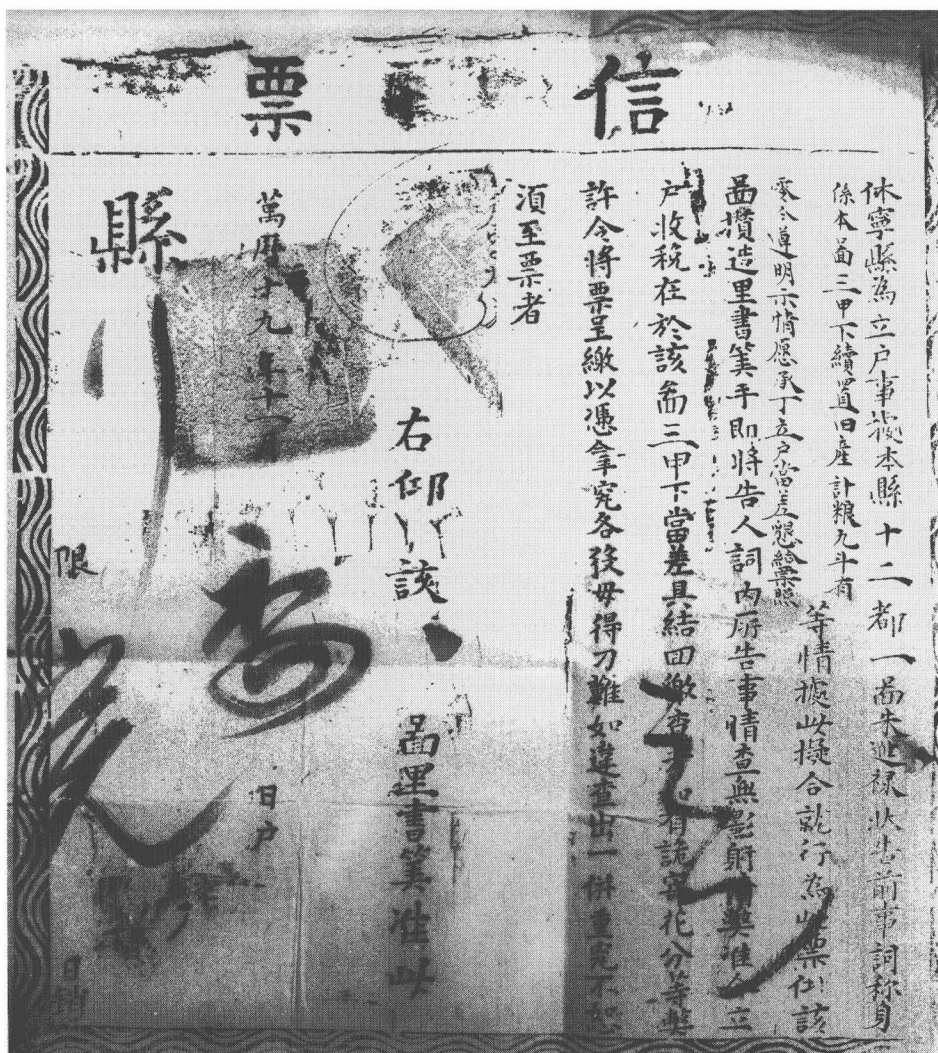 信票
休寧縣為立戶事據本縣十二都一啚朱進祿狀告前事詞称身
係本啚三甲下續置田產計粮九斗有
零今遵明示情愿承丁立户當差懇給票照
等情據此擬合就行為此票仰該
啚攢造里書筭手即將告人詞內所告事情查無影射情弊准令立
户收稅在於該啚三甲下當差具結回繳查考如有詭寄花分等弊
許令將票呈繳以憑拿究各役毋得刁難如違查出一併重究不恕
須至票者
右仰該 啚里書筭准此
萬曆十九年十一月 日户
縣
限 日銷